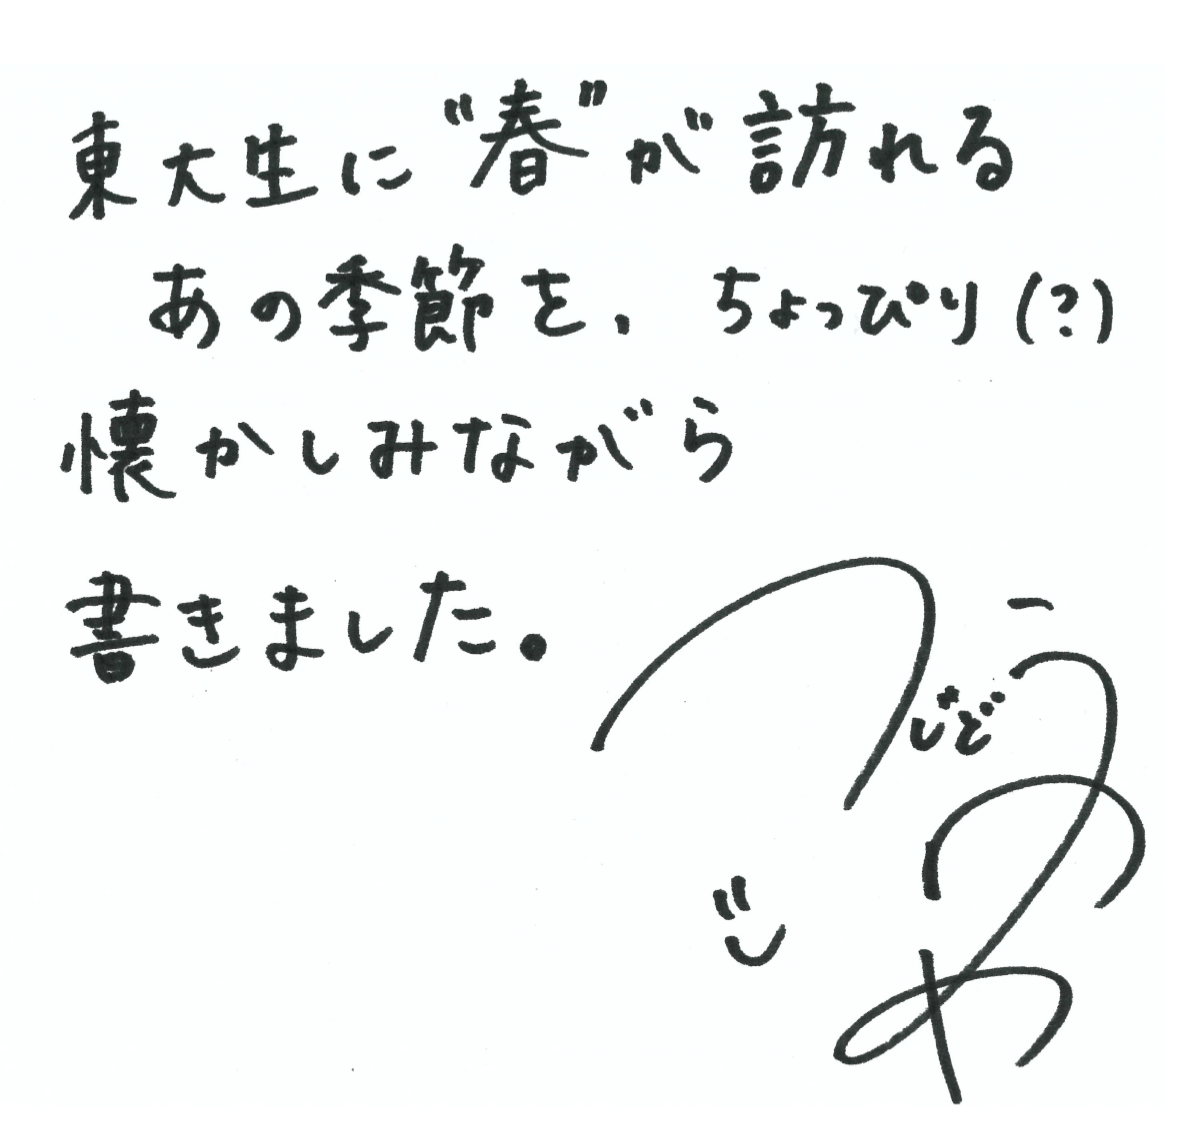 東大生に“春”が訪れる
あの季節を、ちょっぴり(?)
懐かしみながら
書きました。